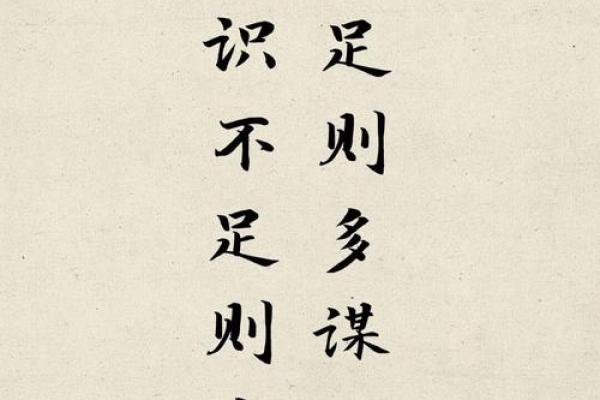 足则多谋
识不足则